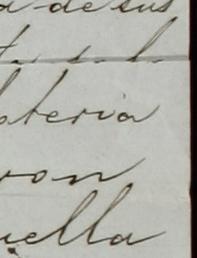 a de sus
ateria
ron
uella